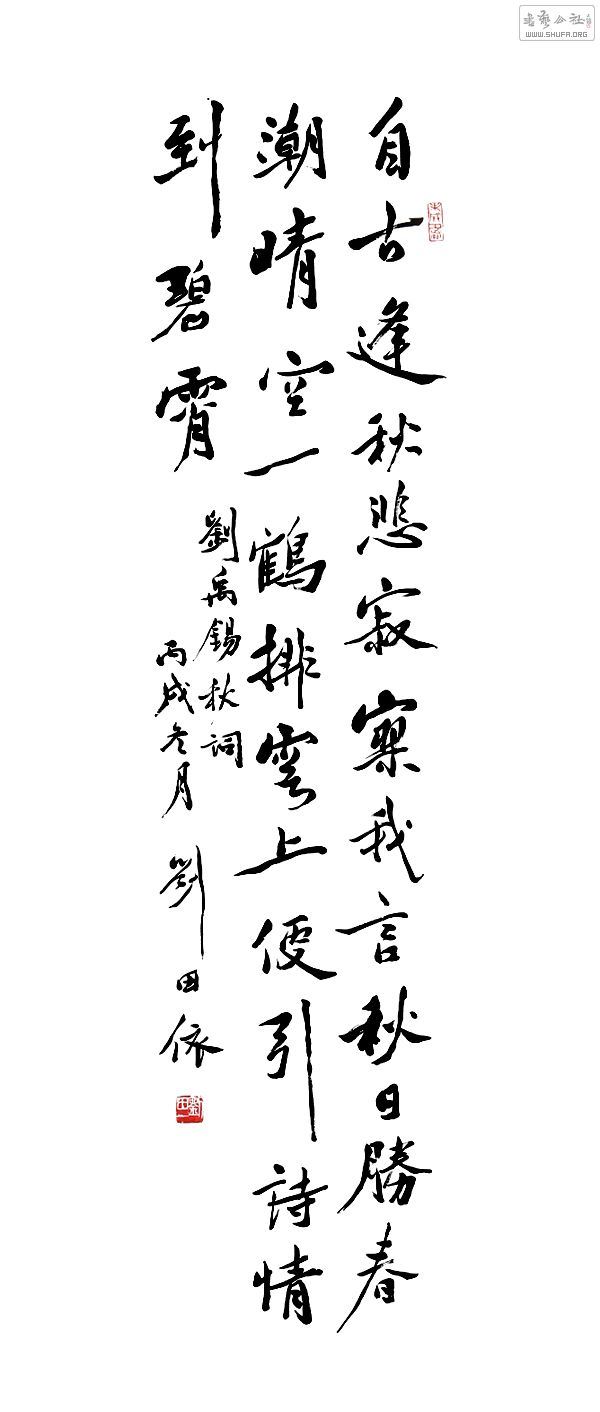 自古逢秋悲寂寥我言秋日勝春
潮晴空一鶴排雲上便引詩情
到碧霄
劉禹錫秋詞
丙戌冬月 劉田依
書藝公社
WWW.SHUFA.ORG